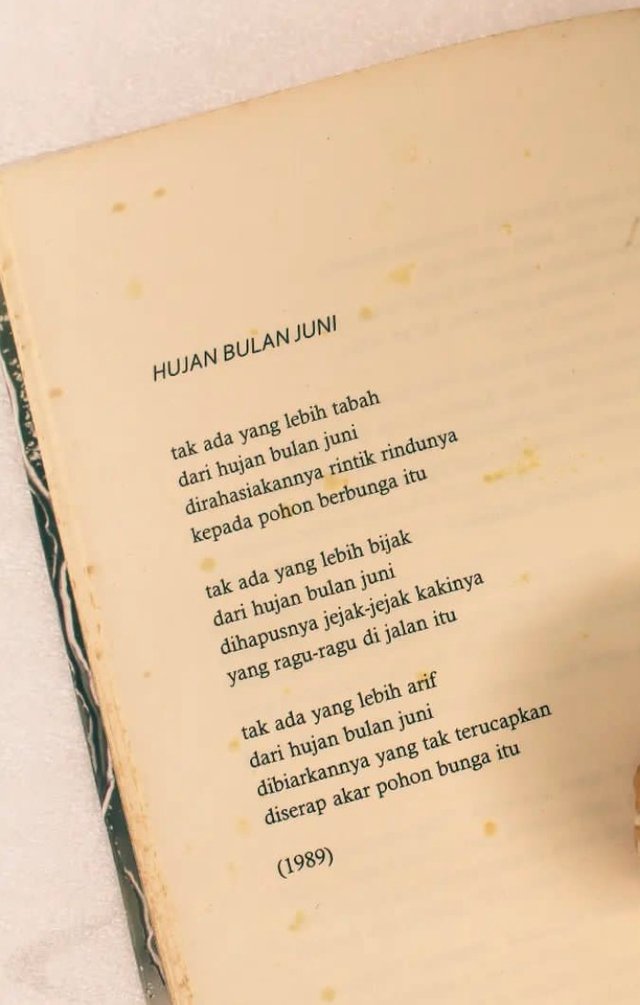 HUJAN BULAN JUNI
tak ada yang lebih tabah
dari hujan bulan juni
dirahasiakannya rintik rindunya
kepada pohon berbunga itu
tak ada yang lebih bijak
dari hujan bulan juni
dihapusnya jejak-jejak kakinya
yang ragu-ragu di jalan itu
tak ada yang lebih arif
dari hujan bulan juni
dibiarkannya yang tak terucapkan
diserap akar pohon bunga itu
(1989)